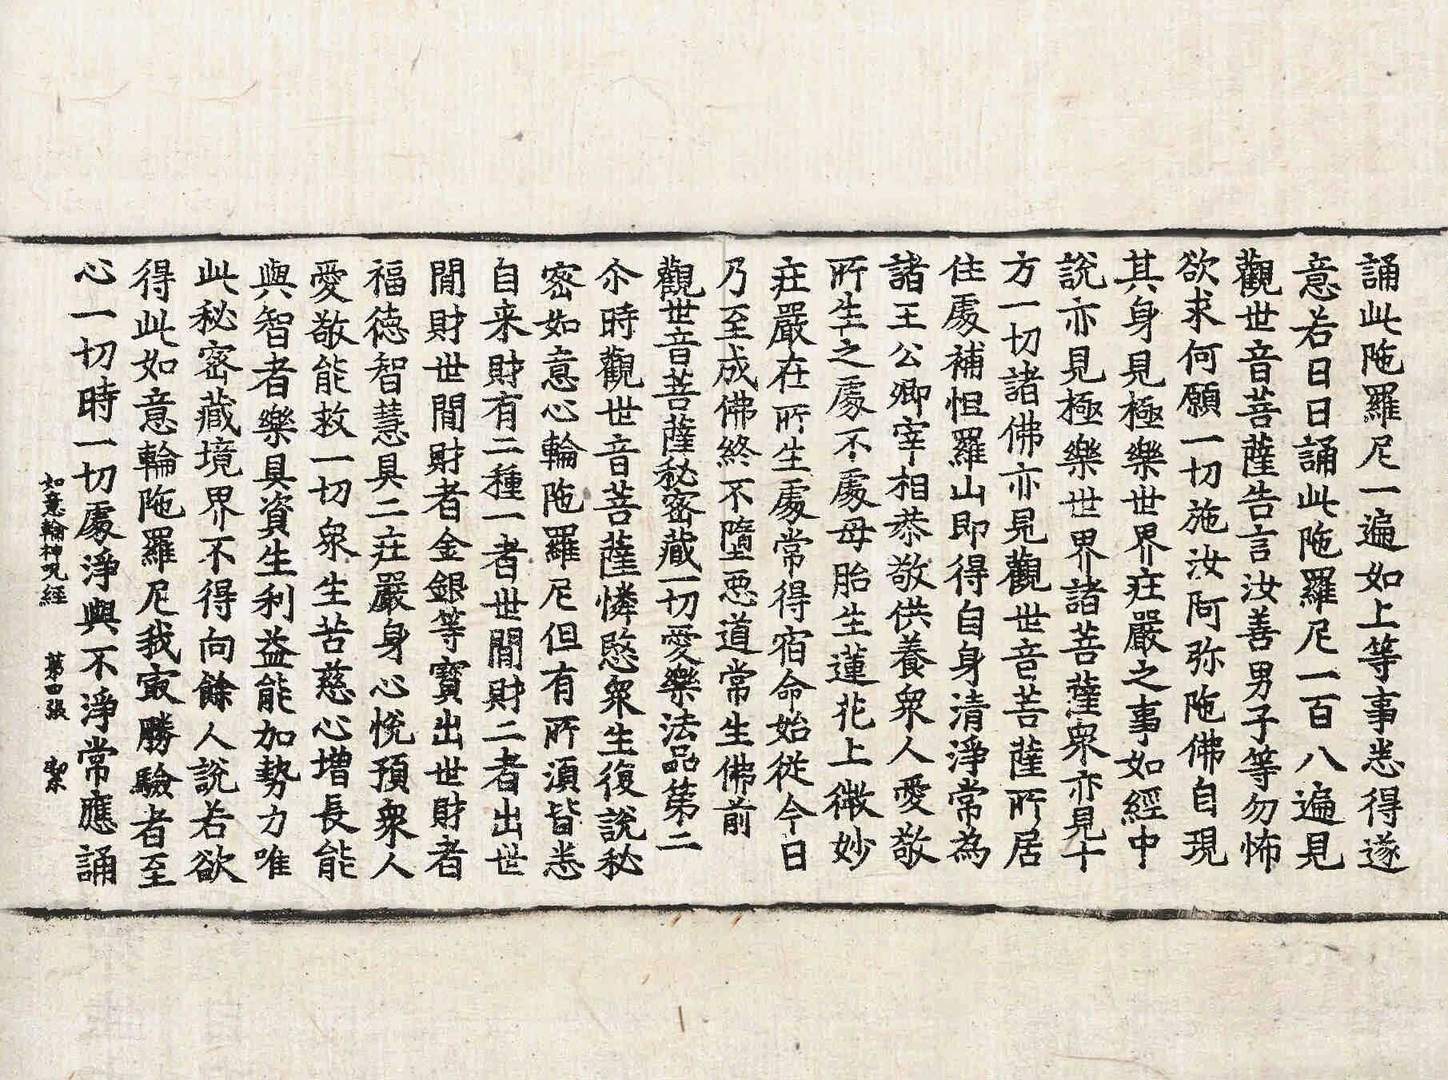 誦此陁羅尼一遍如上等事悉得遂
意若日日誦此陁羅尼一百八遍見
觀世音菩薩告言汝善男子等勿怖
欲求何願一切施汝阿弥陁佛自現
其身見極樂世界庄嚴之事如經中
說亦見極樂世界諸菩薩衆亦見十
方一切諸佛亦見觀世音菩薩所居
住處補怛羅山即得自身清淨常為
諸王公卿宰相恭敬供養衆人愛敬
所生之處不處母胎生蓮花上微妙
庄嚴在所生處常得宿命始從今日
乃至成佛終不墮惡道常生佛前
觀世音菩薩秘密藏一切愛樂法品第二
尒時觀世音菩薩憐愍衆生復說秘
密如意心輪陁羅尼但有所須皆悉
自来財有二種一者世間財二者出世
間財世間財者金銀等寶出世財者
福德智慧具二庄嚴身心悅預衆人
愛敬能救一切衆生苦慈心增長能
與智者樂具資生利益能加勢力唯
此秘密藏境界不得向餘人說若欲
得此如意輪陁羅尼我㝡勝驗者至
心一切時一切處淨與不淨常應誦
如意輪神呪經　第四張